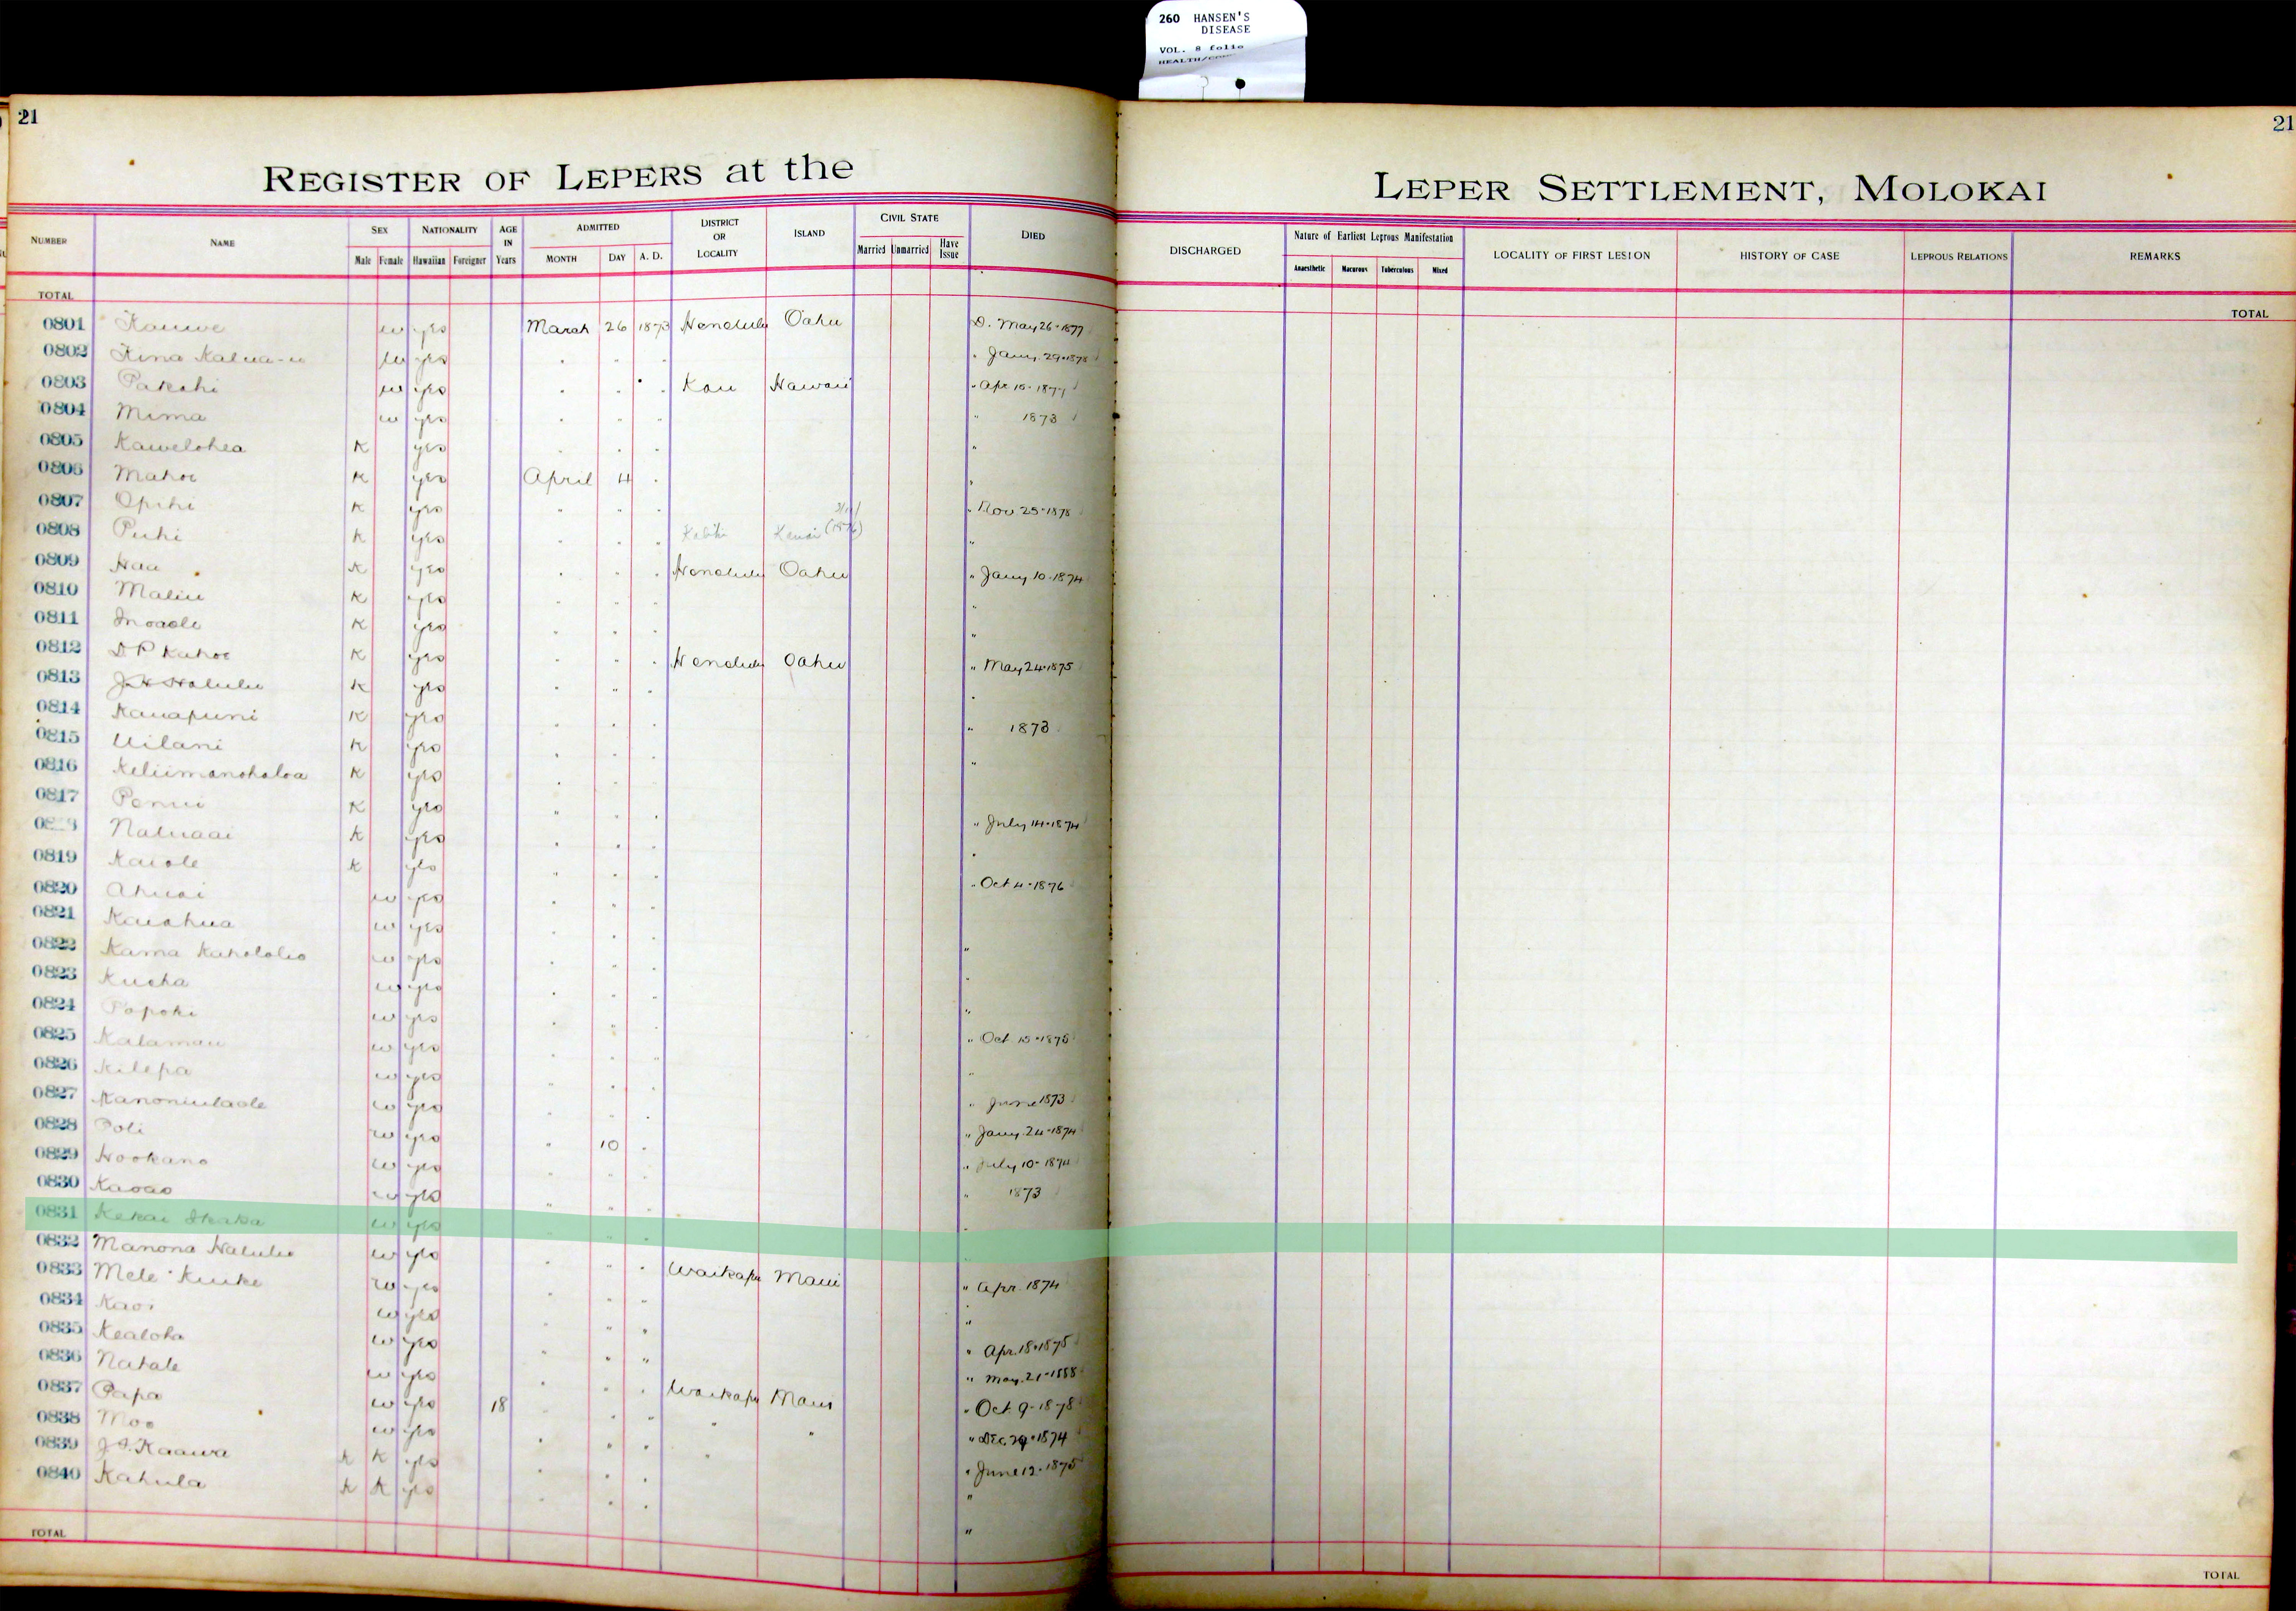 260 HANSEN'S
DISEASE
VOL. 8 folio
21
21
REGISTER OF LEPERS at the
LEPER SETTLEMENT, MOLOKAI
NUMBER NAME SEX NATIONALITY AGE IN Years ADMITTED DISTRICT OR LOCALITY ISLAND CIVIL STATE DIED
Male Female Hawaiian Foreigner MONTH DAY A. D. Married Unmarried Have Issue
DISCHARGED Nature of Earliest Leprous Manifestation LOCALITY OF FIRST LESION HISTORY OF CASE LEPROUS RELATIONS REMARKS
Anaesthetic Macurous Tuberculous Mixed
TOTAL
TOTAL
0801 Kauwe w yes March 26 1873 Honolulu Oahu D. May 26-1877
0802 w yes " " " " Jany. 29-1878
0803 Pakahi w yes " " " Kau Hawaii " Apr 15-1877
0804 Mima w yes " " " " 1873
0805 Kawelohea K yes " " " "
0806 Mahoe K yes April 4 " "
0807 Opihi K yes " " " " Nov 25-1878
0808 Puhi K yes " " " Kauai (1876) "
0809 Hau K yes " " " Honolulu Oahu " Jany 10-1874
0810 Maliu K yes " " " "
0811 K yes " " " "
0812 D P Kahoe K yes " " " Honolulu Oahu " May 24-1875
0813 J. H Halulu K yes " " " "
0814 Kauapuni K yes " " " " 1873
0815 Uilani K yes " " " "
0816 Keliimanohaloa K yes " " "
0817 Penui K yes " " " " July 14-1874
Naluaai K yes " " " "
0819 Kaiole K yes " " " " Oct 4-1876
0820 Ahuai w yes " " "
0821 Kauahua w yes " " " "
0822 Kama Kahololio w yes " " " "
0823 Kueha w yes " " " "
0824 Popoki w yes " " " " Oct. 15-1875
0825 Kalamau w yes " " " "
0826 Kilepa w yes " " " " June 1873
0827 Kanoniulaole w yes " " " " Jany. 24-1874
0828 Poli w yes " 10 " " July 10-1874
0829 Hookano w yes " " " " 1873
0830 Kaoao w yes " " " "
0831 Kekai w yes " " " "
0832 Manona Halulu w yes " " " Waikapu Maui " Apr. 1874
0833 Mele Kuike w yes " " " "
0834 Kaoi w yes " " " " Apr. 18-1875
0835 Kealoha w yes " " " " May. 21-1888
0836 Nahale w yes " " " Waikapu Maui " Oct. 9-1878
0837 Papa w yes 18 " " " " " " Dec. 29-1874
0838 Moo w yes " " " " " June 12-1875
0839 Kaawa K K yes " " " "
0840 Kahula K K yes " " " "
TOTAL
TOTAL